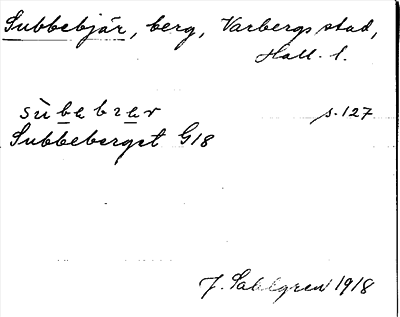 Subbebjär, berg, Varbergs stad,
Hall. l.
sùbebrer s. 127
Subbeberget G18
J. Sahlgren 1918